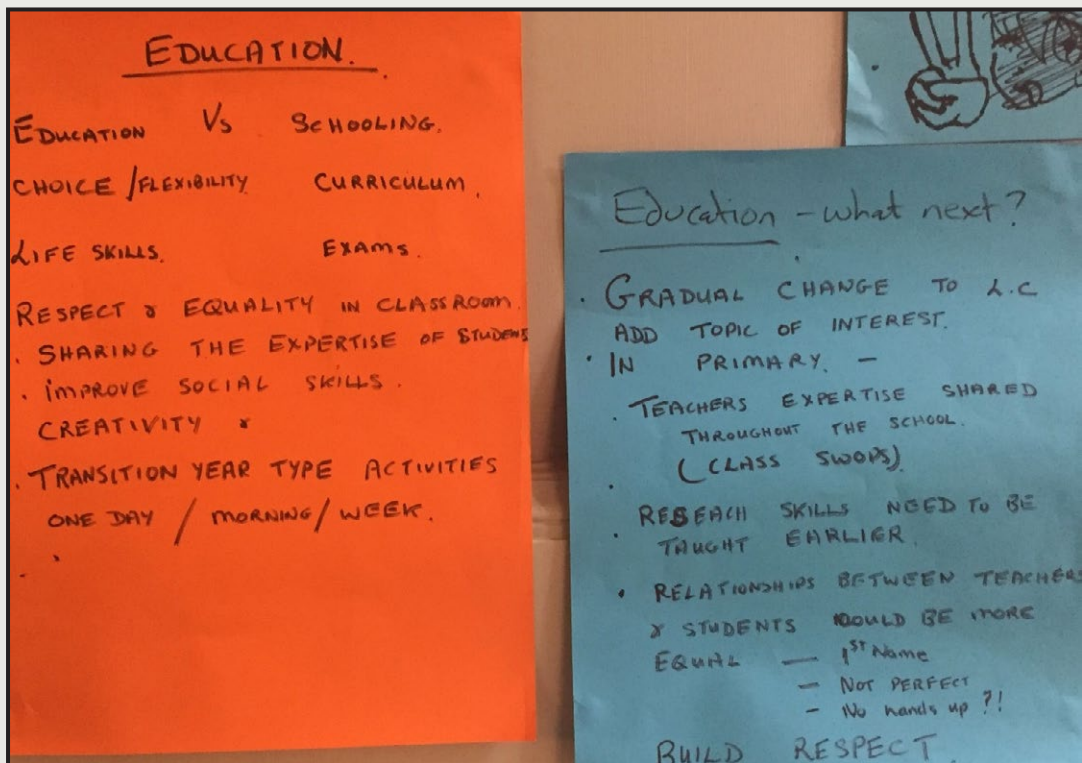 EDUCATION.
EDUCATION Vs SCHOOLING.
CHOICE/FLEXIBILITY CURRICULUM.
LIFE SKILLS. EXAMS.
RESPECT & EQUALITY IN CLASSROOM.
. SHARING THE EXPERTISE OF STUDENTS
. IMPROVE SOCIAL SKILLS.
CREATIVITY &
. TRANSITION YEAR TYPE ACTIVITIES
ONE DAY / MORNING / WEEK.
Education - what next?
. GRADUAL CHANGE TO L.C
ADD TOPIC OF INTEREST.
. IN PRIMARY. -
. TEACHERS EXPERTISE SHARED
THROUGHOUT THE SCHOOL.
(CLASS SWOPS)
. RESEACH SKILLS NEED TO BE
TAUGHT EARLIER.
. RELATIONSHIPS BETWEEN TEACHERS
& STUDENTS COULD BE MORE
EQUAL — 1ST Name
- NOT PERFECT
- No hands up ?!
BUILD RESPECT